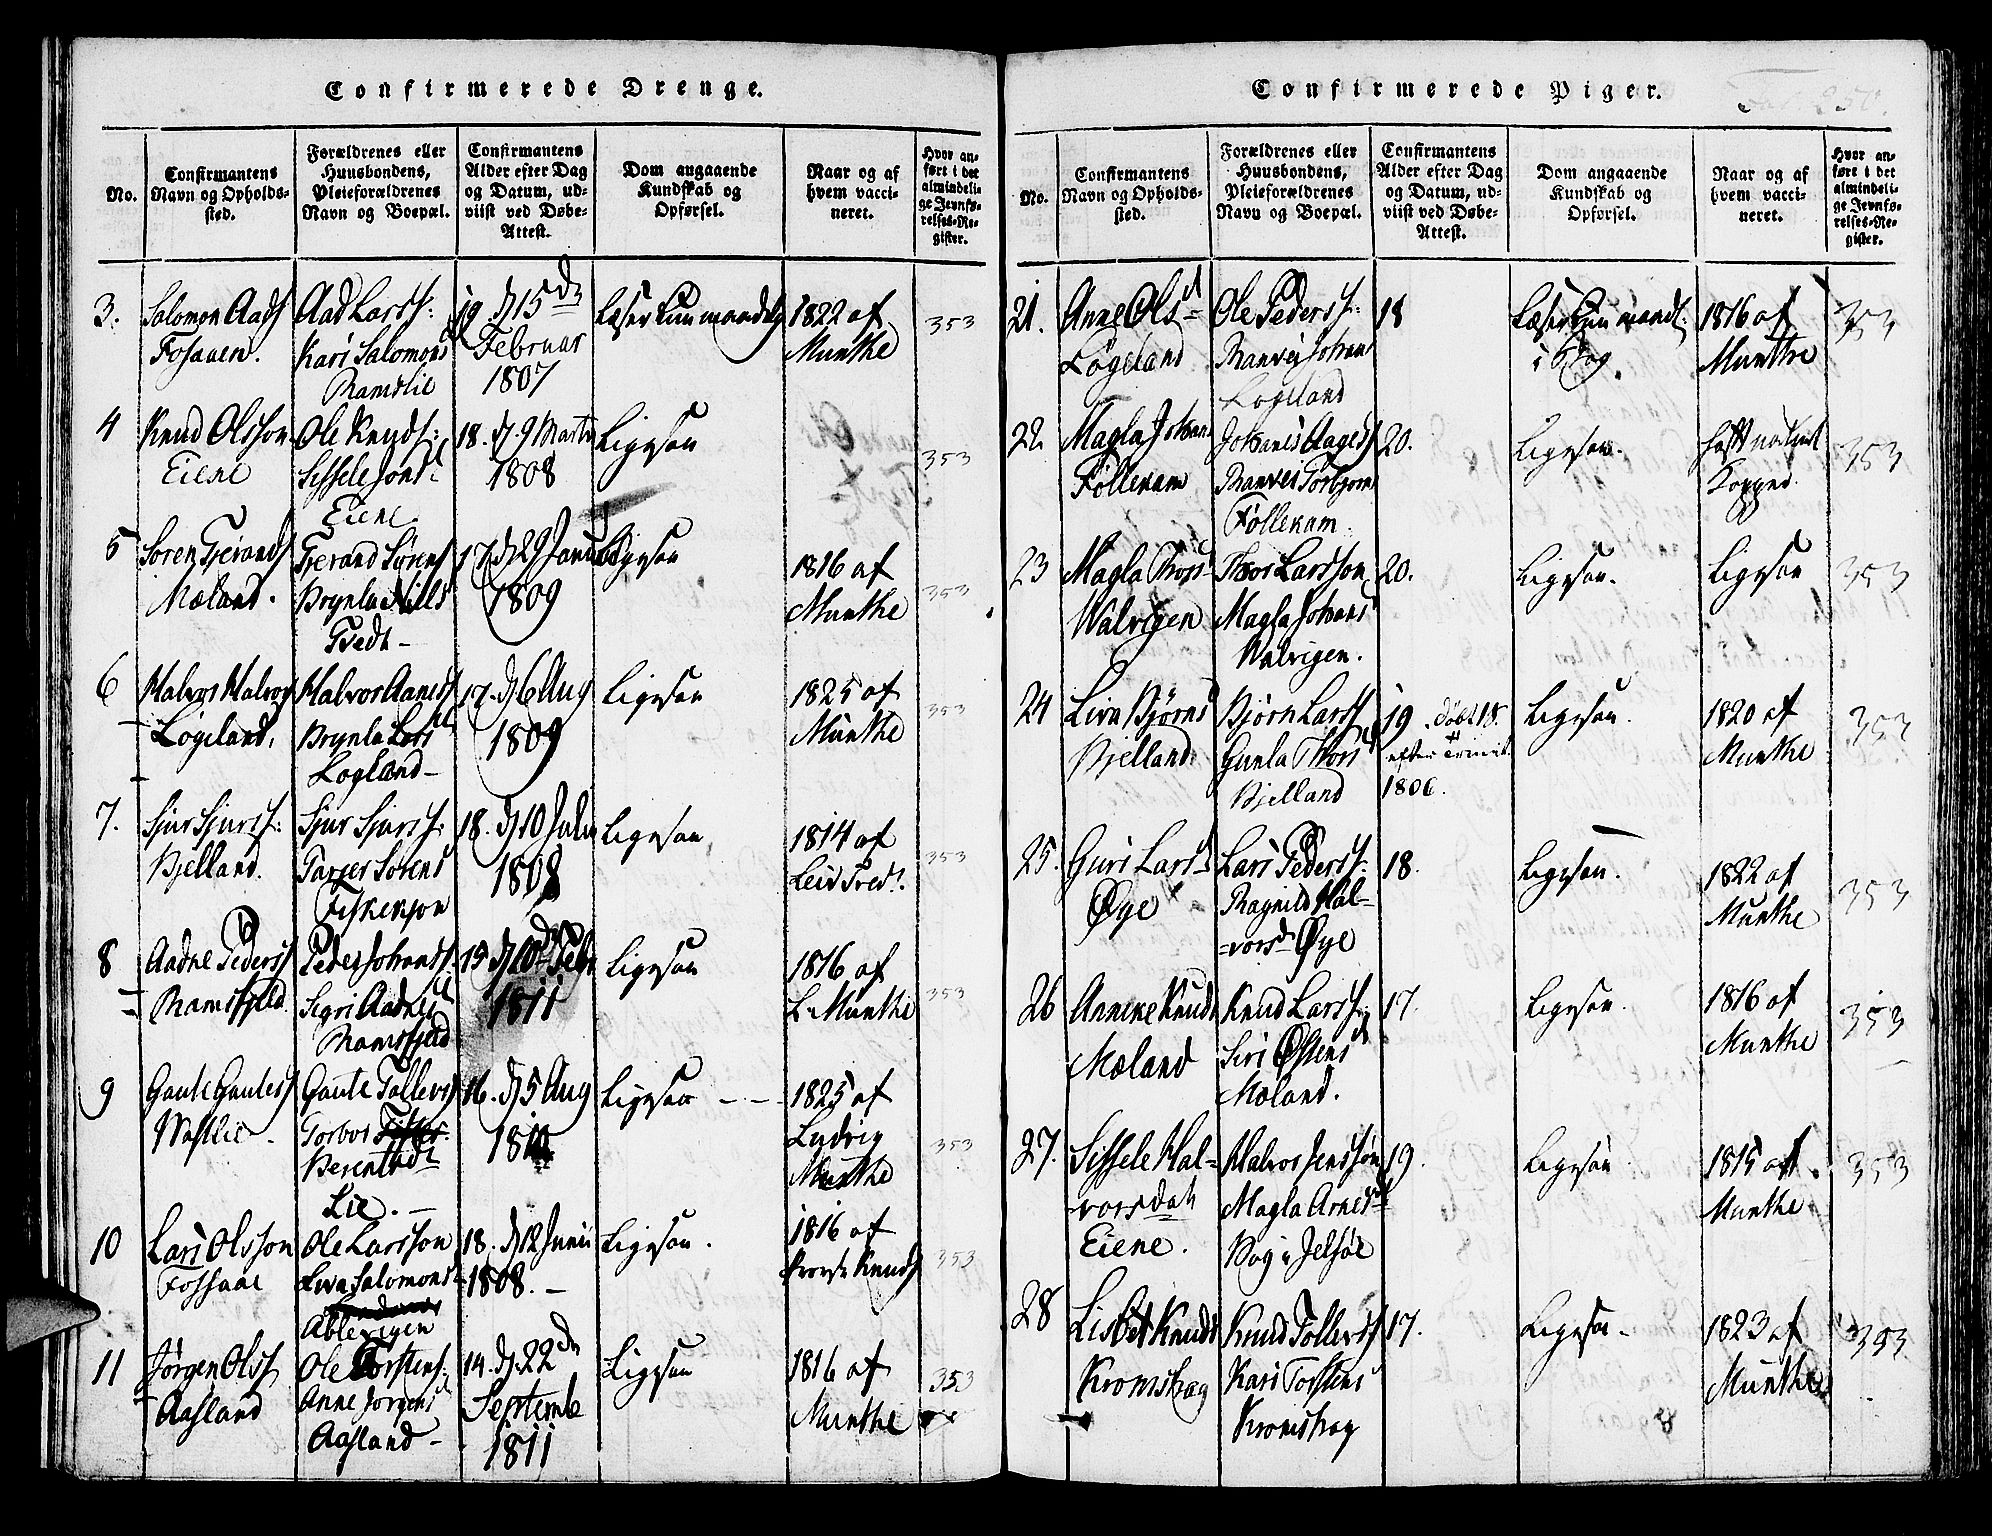 Confirmerede Drenge.
No.
Confirmantens
Navn og Opholds-
sted.
Forældrenes eller
Huusbondens,
Pleieforældrenes
Navn og Boepæl.
Confirmantens
Alder efter Dag
og Datum, ud-
viist ved Døbe-
Attest.
Dom angaaende
Kundskab og
Opførsel.
Naar og af
hvem vacci-
neret.
Hvor an-
ført i det
almindeli-
ge Jevnfø-
relses-Re-
gister.
3.
Salomon Aads
Fosaaen.
Aad Larss:
Kari Salomonsd
Ramslie
19 d 15de
Februar
1807
Læser kun maadelig
1822 af
Munthe
353
4
Knud Olsson
Eiene
Ole Knuds:
Sissele Jonsd
Eiene
18. d. 9 Marts
1808
Ligesaa
353
5
Soren
Mæland.
Sørens
Brynla Nills
Tvedt -
17. d 29 Janu
1809
Ligesaa
1816 af
Munthe
353
6
Halvor Halvors
Løgeland.
Halvor Aaness
Brynla Larsd
Logland -
17. d 6 Aug
1809
Ligesaa
1825 af
Munthe
353
7.
Sjur Sjurss:
Bjelland.
Sjur Sjurss:
Sorens
18. d 10 Julii
1808
Ligesaa
1814 af
353
8
Aadne Pederss
Ramsfjeld
Peder Johanss:
Sigri Aadnesd
Ramsfjeld
15 d 10de Febr
1811
Ligesaa
1816 af
L. Munthe
353
9
Gaute Gautess
Waslie -
Gaute Tollevs
Torbor
Lie. -
16. d 5 Aug
Ligesaa - . -
1825 af
Ludvig
Munthe
353
10
Lars Olsson
Fossaae
Ole Larsson
Liva Salomons
18. d 12 Junii
1808. -
Ligesaa.
1816 af
Knuds
353
11
Jørgen Olss
Aasland
Ole Torstens:
Anne Jorgensd
Aasland -
14. d. 22de
Septembr
1811
Ligesaa
1816 af
Munthe
353
Confirmerede Piger.
Fol. 250.
No.
Confirmantens
Navn og Opholds-
sted.
Forældrenes eller
Huusbondens,
Pleieforældrenes
Navn og Boepæl.
Confirmantens
Alder efter Dag
og Datum, ud-
viist ved Døbe-
Attest.
Dom angaaende
Kundskab og
Opførsel.
Naar og af
hvem vacci-
neret.
Hvor an-
ført i det
almindeli-
ge Jevnfø-
relses-Re-
gister.
21.
Anne Olsd
Løgeland
Ole Pederss:
Ranvei Johans
Logeland
18
Læser kun maadl.
i Bog.
1816 af
Munthe
353
22.
Magla Johans
Føllekam
Johanes Aagess
Ranvei Torbjorns
Føllekam.
20.
Ligesaa.
haft naturl.
Kopper.
353
23
Magla Thors
Walvigen
Thor Larsson
Magla Johans
Walvigen.
20.
Ligesaa.
Ligesaa
353
24
Liva Bjørnsd
Bjelland
Bjørn Larss
Gunla Thorsd
Bjelland
19. døbt 18.
efter Trinit.
1806.
Ligesaa.
1820 af
Munthe
353
25.
Guri Larsd
Øye
Lars Pederss:
Ragnild Hal-
vorsd Øye
18.
Ligesaa.
1822 af
Munthe
353
26
Annene Knuds
Mæland
Knud Larss:
Siri Østensd
Mæland.
17.
Ligesaa.
1816 af
Munthe
353
27.
Sissele Hal-
vorsdat
Eiene.
Halvor Jenssøn
Magla Arnesd
Bog i Jelsøe
19.
Ligesaa.
1815 af
Munthe
353
28
Lisbet Knuds
Kromshag
Knud Tollevss
Kari Torstens
Kromshag
17.
Ligesaa -
1823 af
Munthe
353